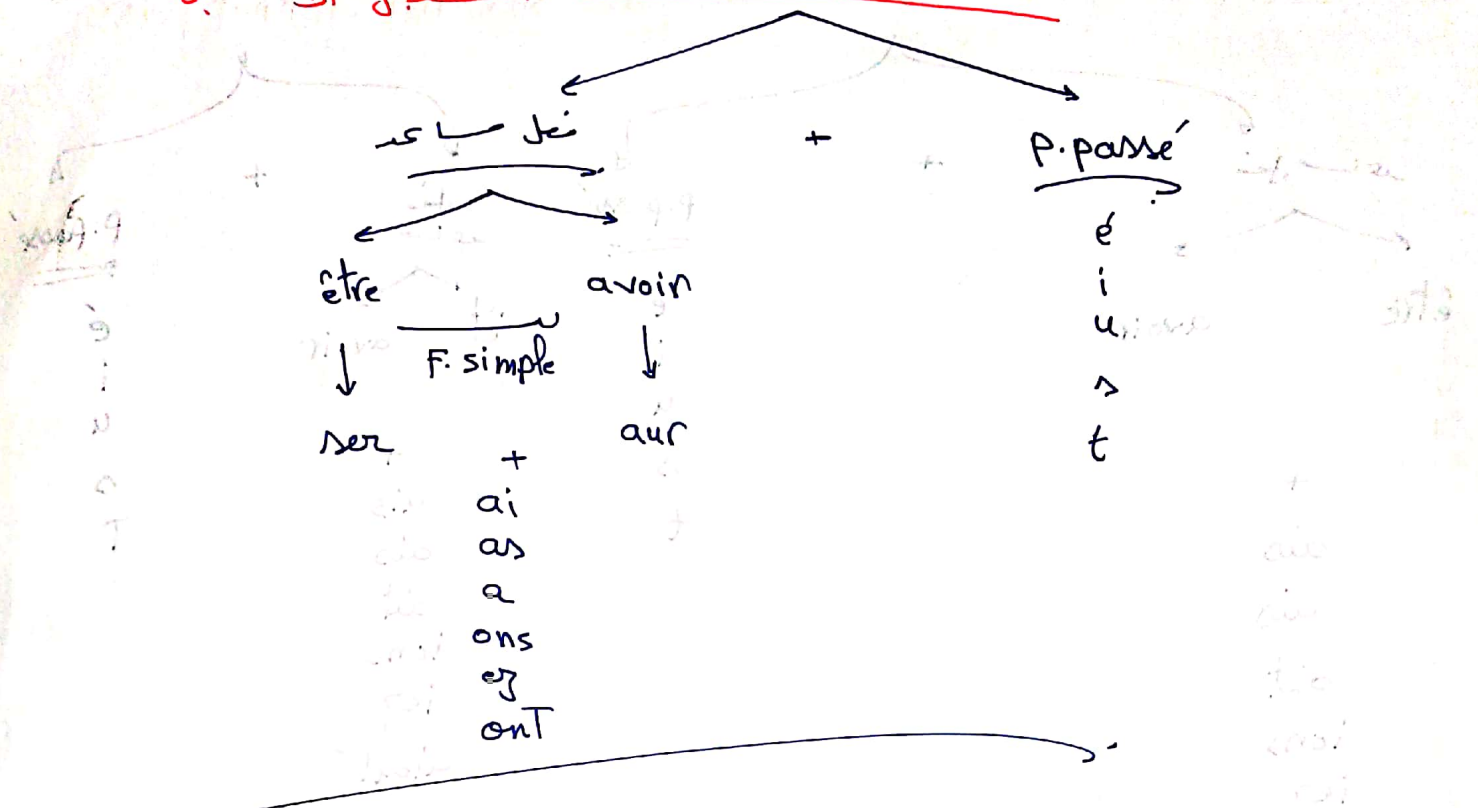 فعل مساعد + p.passé
être avoir é
i
F. simple u
s
ser aur t
+
ai
as
a
ons
ez
onT